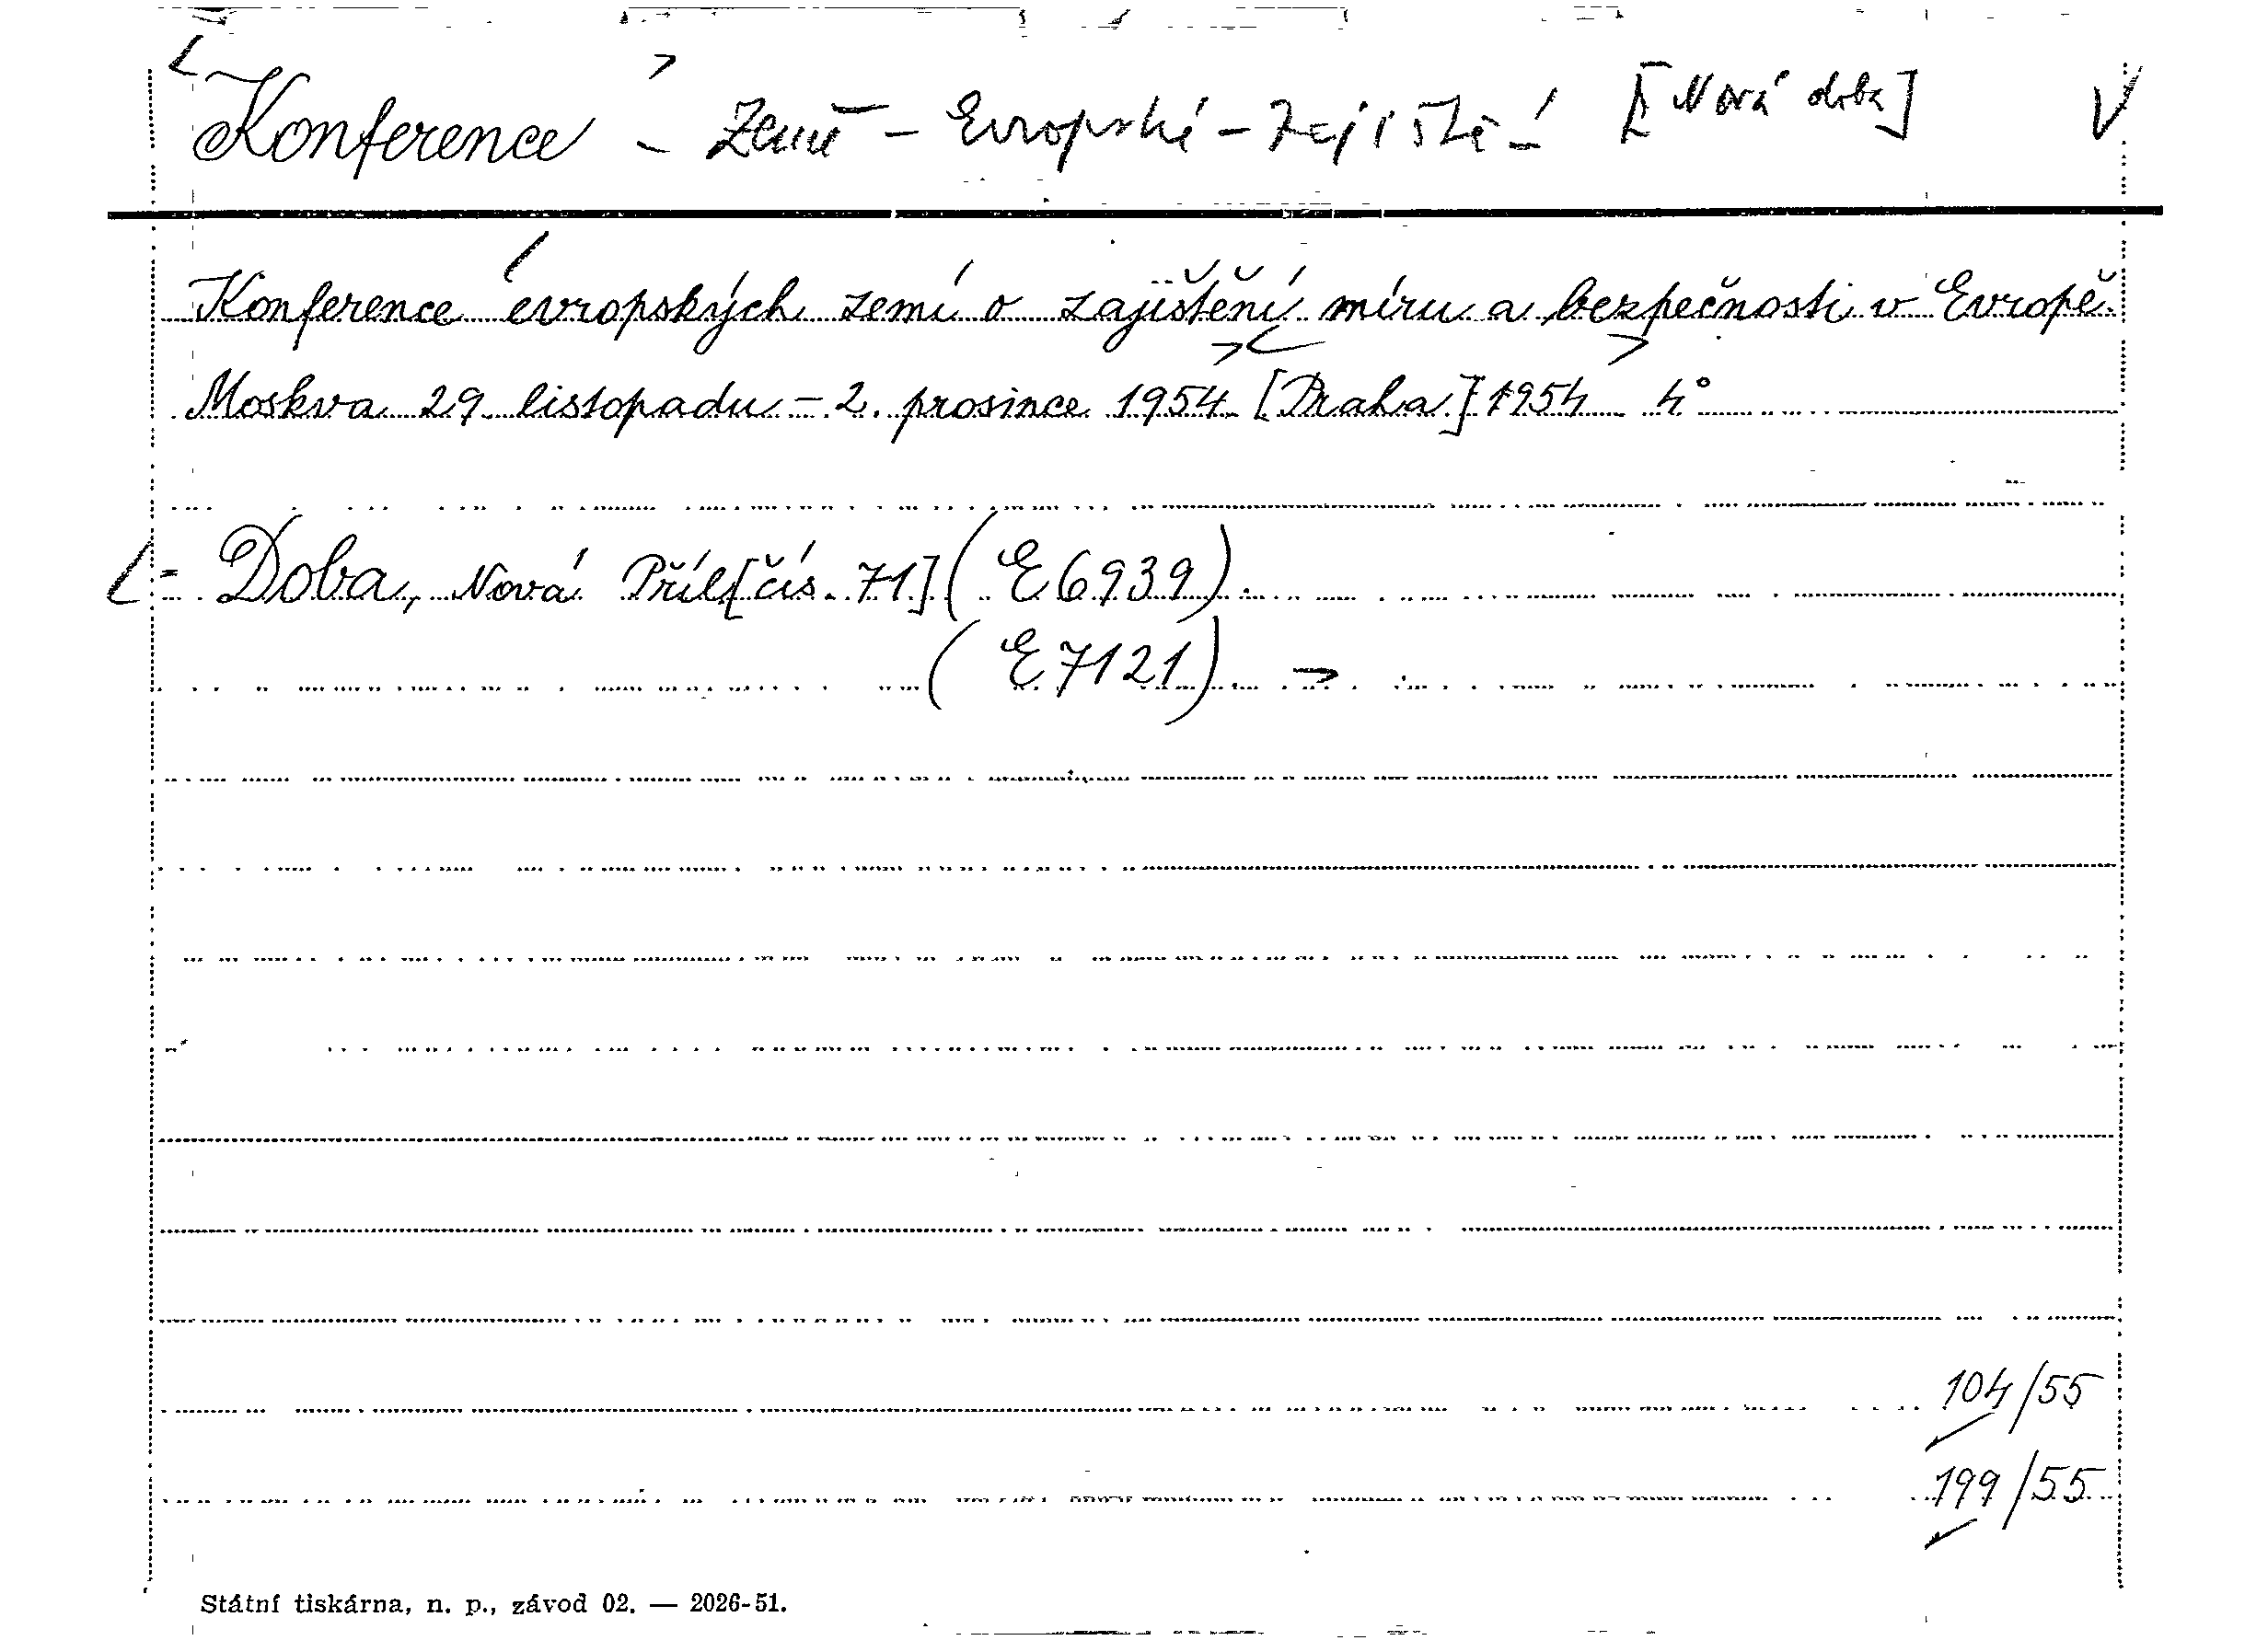 Konference - Země - Evropské - Zajiště- [Nová doba] V
Konference evropských zemí o zajištění míru a bezpečnosti v Evropě.
Moskva 29. listopadu - 2. prosince 1954. [Praha] 1954 4°
= Doba, Nová Příl[čís. 71] (E 6939).
(E 7121).
104/55
199/55
Státní tiskárna, n. p., závod 02. — 2026-51.